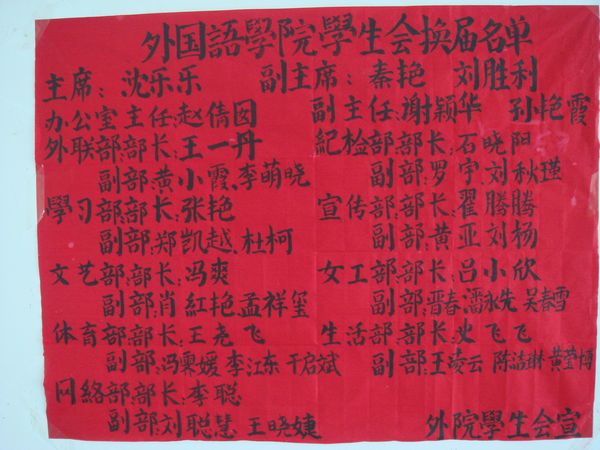 外国語學院學生会换届名单
主席：沈乐乐 副主席：秦艳 刘胜利
办公室主任：赵倩囡 副主任：谢颖华 孙艳霞
外联部：部长：王一丹 紀检部：部长：石晓阳
副部：黄小霞、李萌晓 副部：罗宇、刘秋瑾
學习部：部长：张艳 宣传部：部长：翟腾腾
副部：郑凯越、杜柯 副部：黄亚、刘杨
文艺部：部长：冯爽 女工部：部长：吕小欣
副部：肖紅艳、孟祥玺 副部：晋春、潘永先 吴春雪
体育部：部长：王尧飞 生活部：部长：史飞飞
副部：冯媛 李江东 于启斌 副部：王凌云 陈洁琳 黄莹博
网络部：部长：李聪
副部：刘聪慧 王晓婕
外院學生会宣